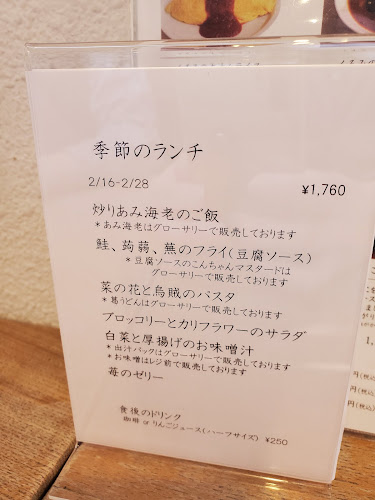 季節のランチ
2/16-2/28
¥1,760
炒りあみ海老のご飯
*あみ海老はグローサリーで販売しております
鮭、蒟蒻、蕪のフライ(豆腐ソース)
*豆腐ソースのこんちゃんマスタードは
グローサリーで販売しております
菜の花と烏賊のパスタ
*葛うどんはグローサリーで販売しております
ブロッコリーとカリフラワーのサラダ
白菜と厚揚げのお味噌汁
*出汁パックはグローサリーで販売しております
*お味噌はレジ前で販売しております
苺のゼリー
食後のドリンク
珈琲 or りんごジュース(ハーフサイズ) ¥250